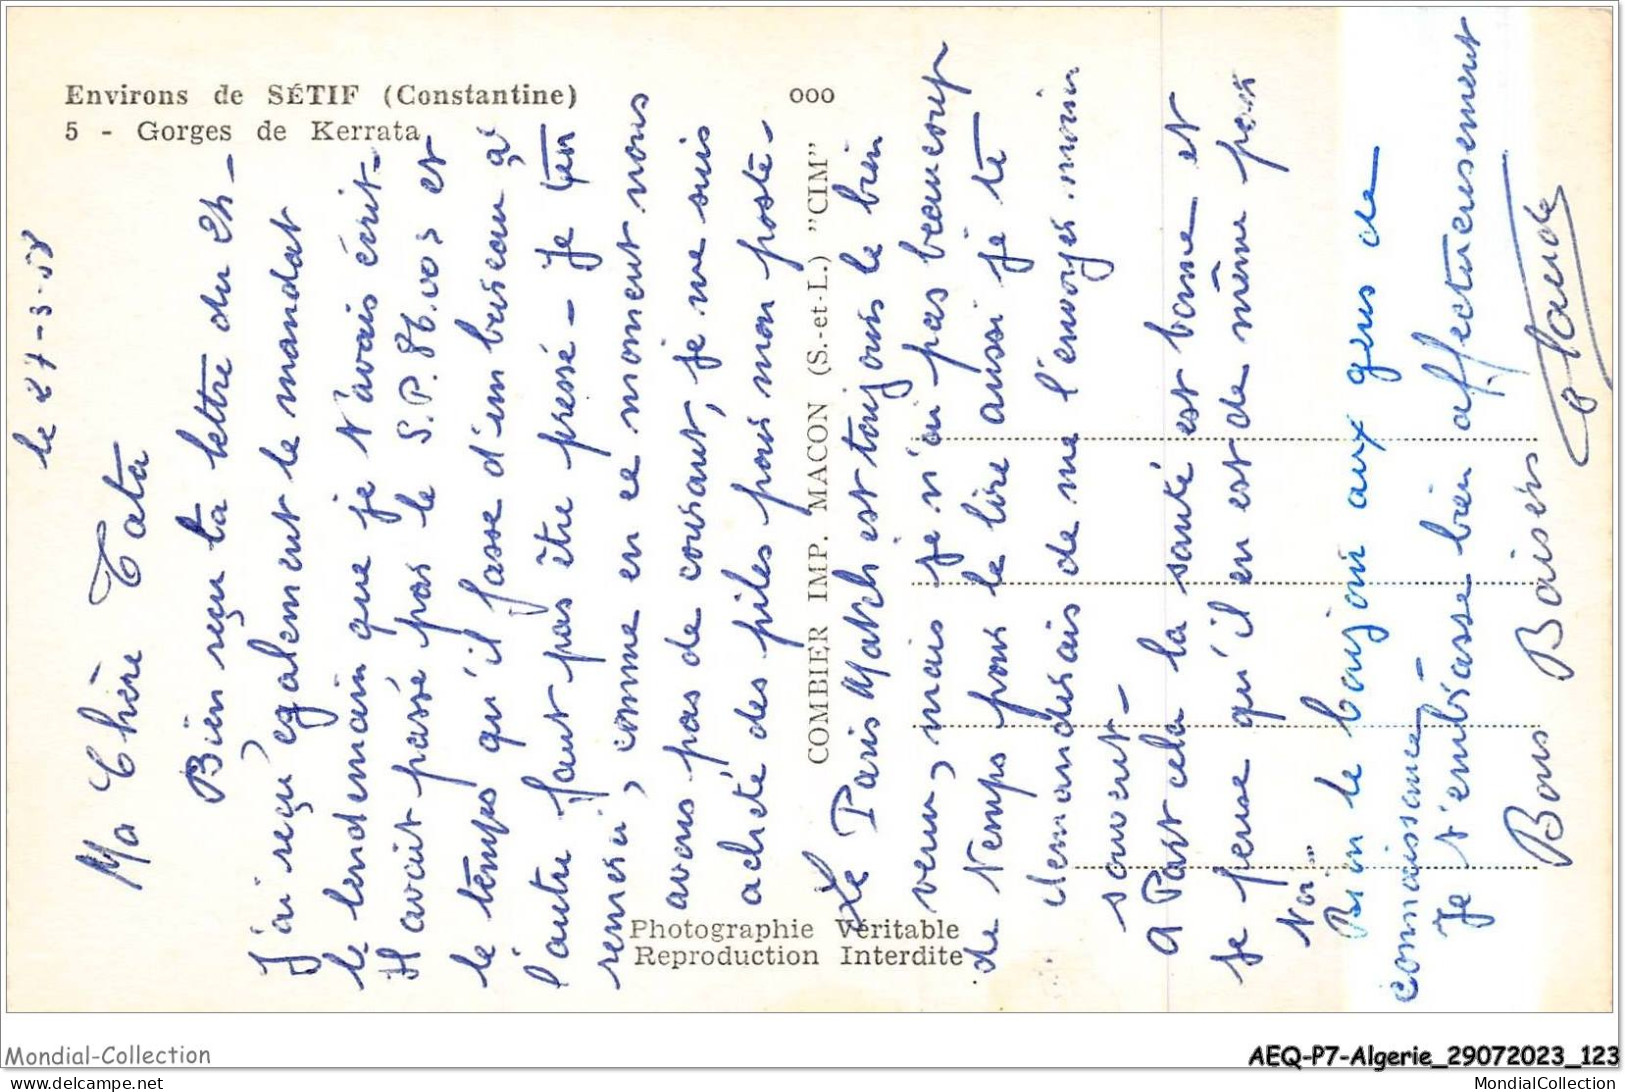 Environs de SÉTIF (Constantine)
5 - Gorges de Kerrata
ooo
COMBIER IMP. MACON (S.-et-L.) "CIM"
Photographie Véritable
Reproduction Interdite
le 27-3-58
Ma Chère Tata
Bien reçu ta lettre du 24-
J'ai reçu egalement le mandat
le lendemain que je t'avais écrit-
Il avait passé par le S.P. 86.003 et
le temps qu'il passe d'un bureau à
l'autre faut pas être pressé - Je t'en
remerci, comme en ce moment nous
avons pas de courant, je me suis
acheté des piles pour mon poste-
Le Paris Match est toujours le bien
venu, mais je n'ai pas beaucoup
de temps pour le lire aussi je te
demanderais de me l'envoyer moin
souvent-
A Part cela la santé est bonne et
je pense qu'il en est de même pour
toi
Bien le bonjour aux gens de
connaissance
Je t'embrasse bien affectueusement
Bons Baisers
Claude
Mondial-Collection
AEQ-P7-Algerie_29072023_123
www.delcampe.net
MondialCollection